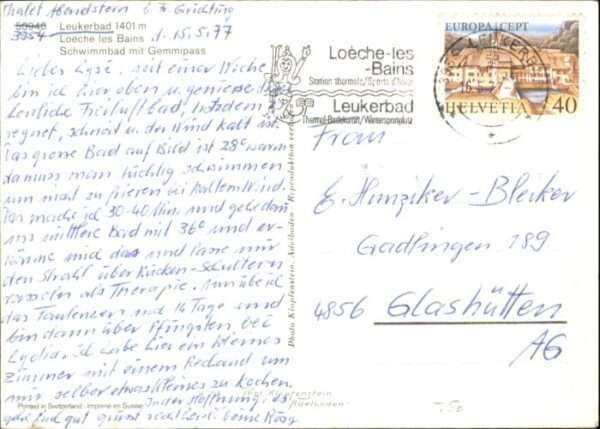 Chalet Abendstern b. Fr. Grichting
Leukerbad 1401 m
3954
Loèche les Bains d. 15.5.77
Schwimmbad mit Gemmipass
Loèche-les
-Bains
Station thermale/Sports d'hiver
Leukerbad
Thermal-Badekurort/Wintersportplatz
EUROPA CEPT
HELVETIA 40
Liebe Lysé, seit einer Woche
bin ich hier oben u. geniesse das
herrliche Freiluftbad, trotzdem es
regnet, schneit u. der Wind kalt ist.
Das grosse Bad auf Bild ist 28° warm
da muss man tüchtig schwimmen
um nicht zu frieren bei kaltem Wind.
Das mache ich 30-40 Min und gehe dann
ins mittlere Bad mit 36° und er-
wärme mich das und lasse mir
den Strahl über Rücken-Schultern
rasseln als Therapie.
das Faulenzen und 14 Tage und
bin dann über Pfingsten bei
Lydia. ich habe hier ein kleines
Zimmer mit einem Rechaud um
mir selber etwas kleines zu kochen.
In der Hoffnung, es
gehe Euch gut grüsst Deine Rösy
Photo Klopfenstein, Adelboden / Reproduktion verboten
Printed in Switzerland - Imprimé en Suisse
Frau
E. Hunziker-Bleiker
Gadlingen 189
4856 Glashütten
AG